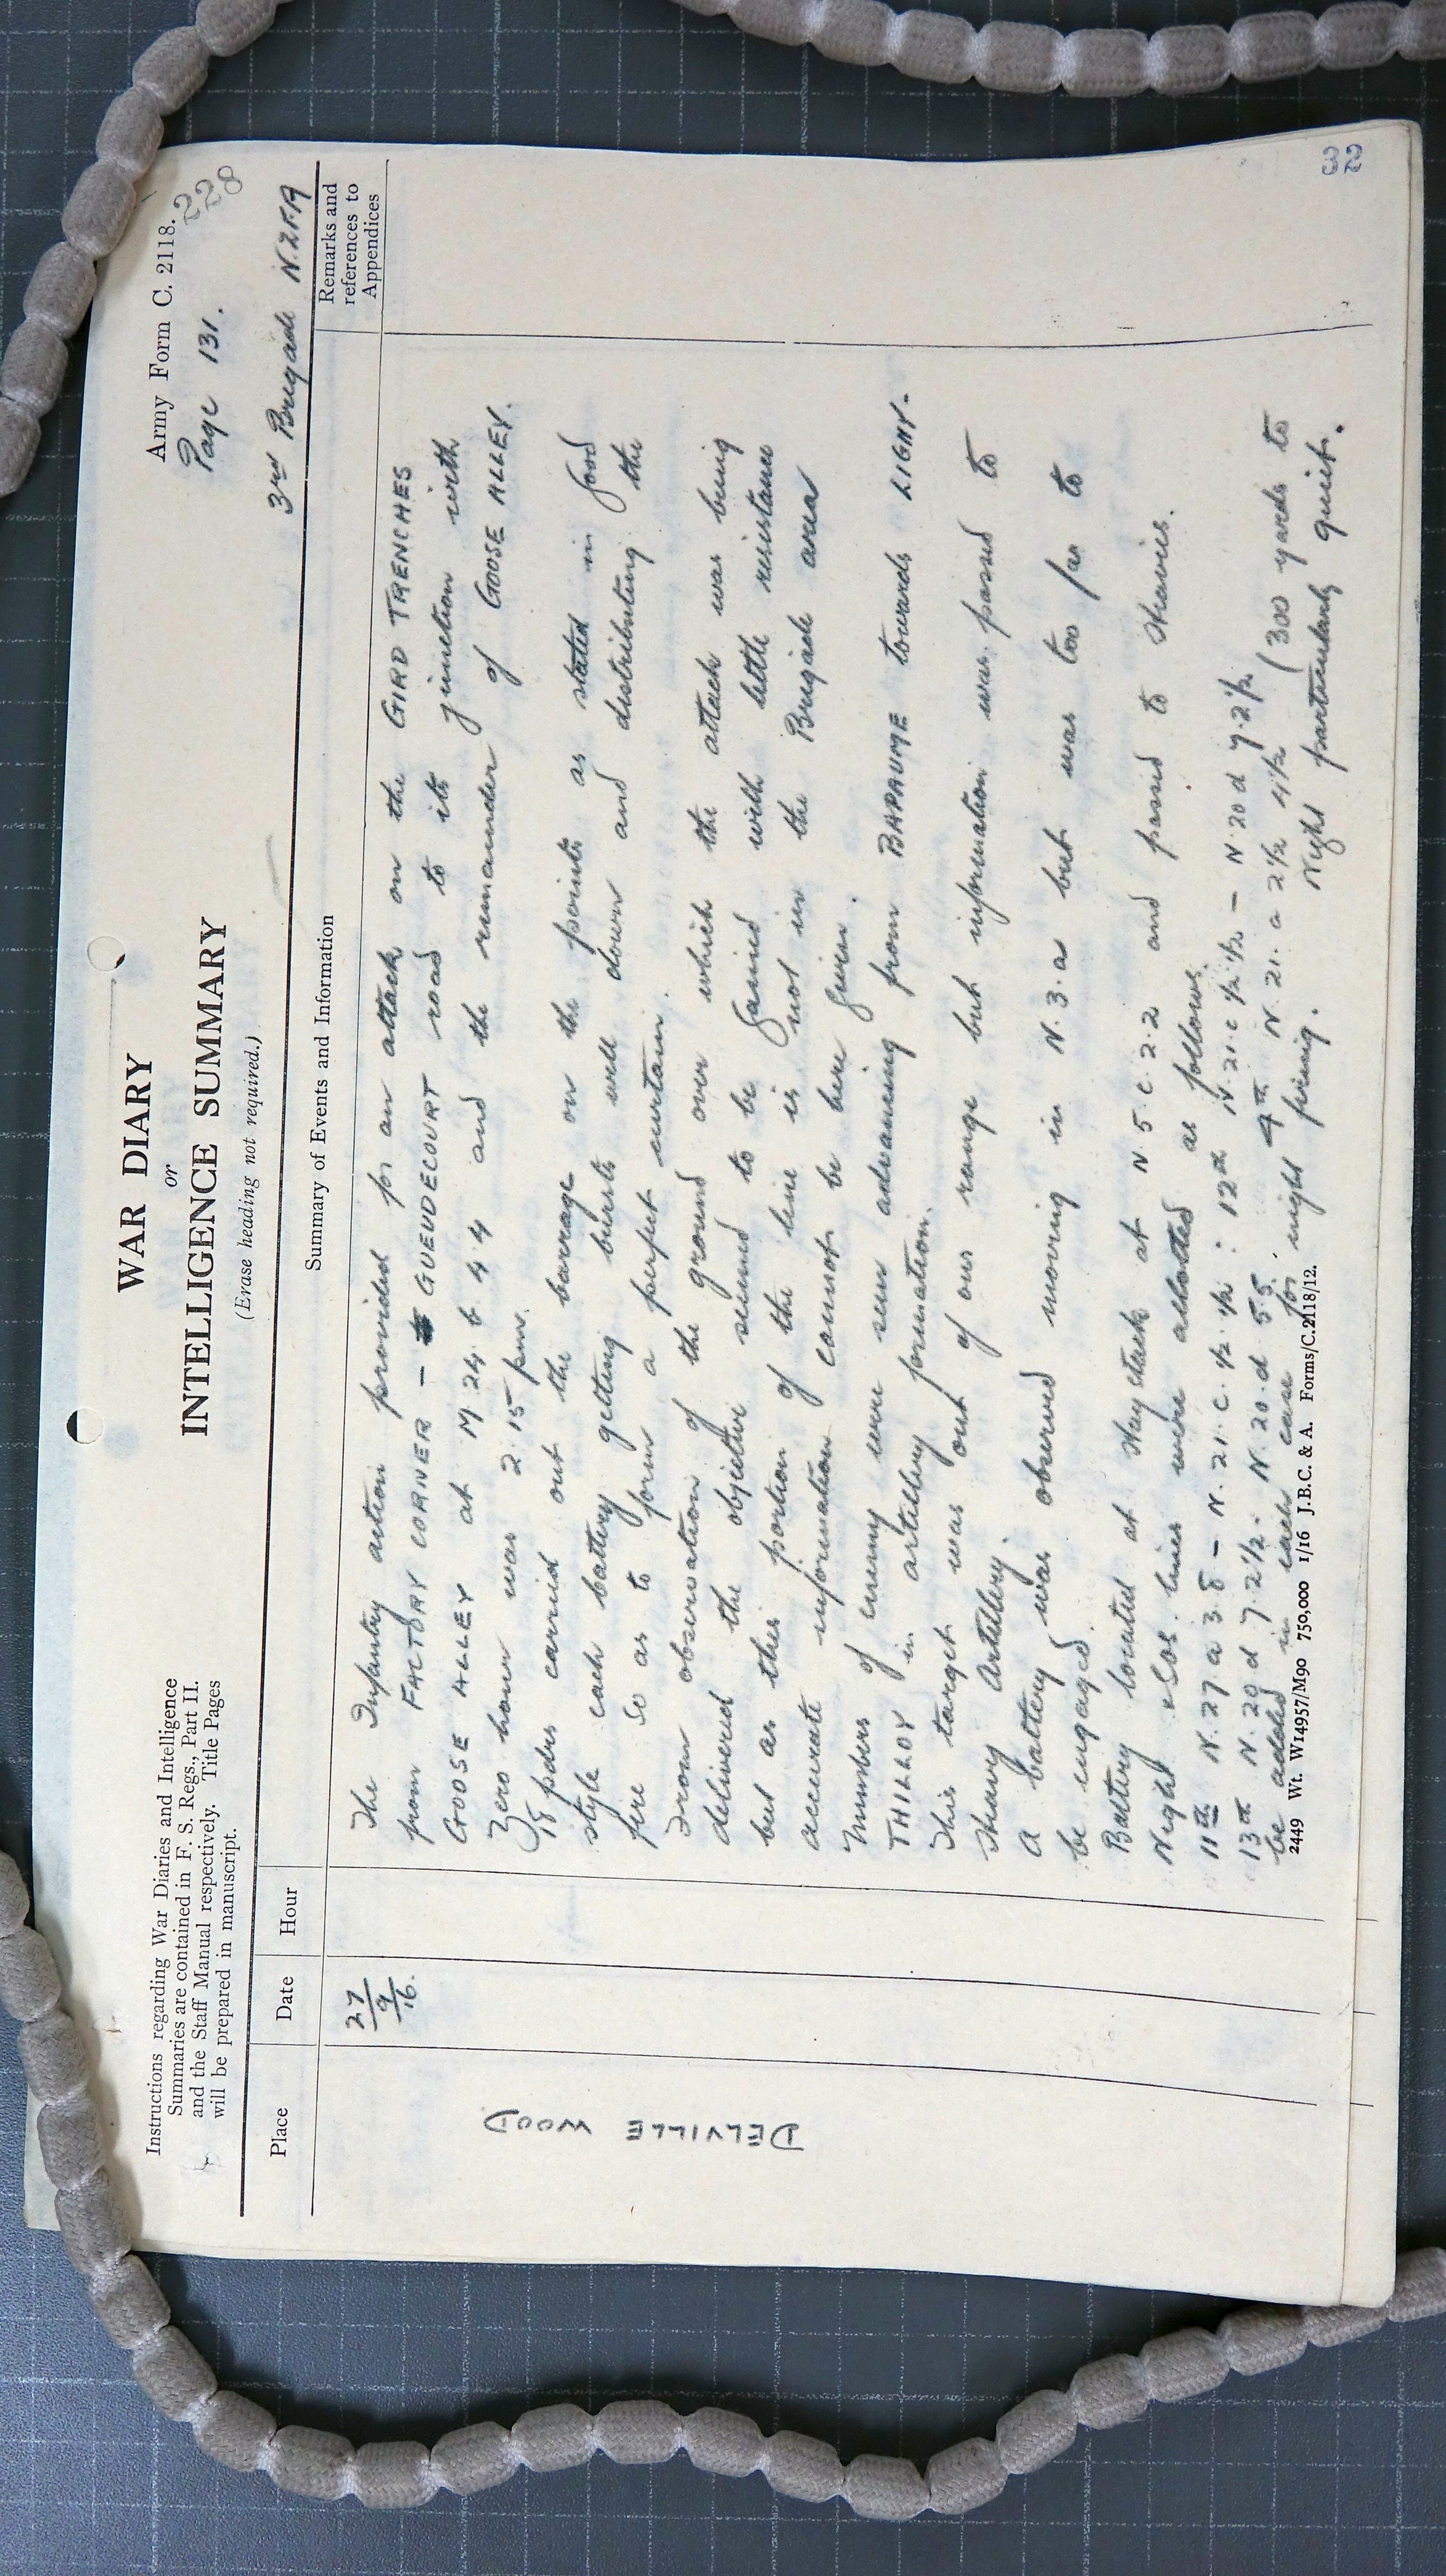 Army Form C. 2118.
228
Page 131.
3rd Brigade N.Z.F.A
WAR DIARY
or
INTELLIGENCE SUMMARY
(Erase heading not required.)
Instructions regarding War Diaries and Intelligence
Summaries are contained in F. S. Regs., Part II.
and the Staff Manual respectively. Title Pages
will be prepared in manuscript.
Place
Date
Hour
Summary of Events and Information
Remarks and
references to
Appendices
DELVILLE WOOD
27/9/16.
The Infantry action provided for an attack on the GIRD TRENCHES
from FACTORY CORNER - GUEUDECOURT road to its junction with
GOOSE ALLEY at M 24. b 4.4 and the remainder of GOOSE ALLEY.
Zero hour was 2.15 pm.
18 pdrs carried out the barrage on the points as stated in good
style each battery getting bursts well down and distributing the
fire so as to form a perfect curtain.
From observation of the ground over which the attack was being
delivered the objective seemed to be gained with little resistance
but as this portion of the line is not in the Brigade area
accurate information cannot be here given.
Numbers of enemy were seen advancing from BAPAUME towards LIGNY-
THILLOY in artillery formation.
This target was out of our range but information was passed to
Heavy Artillery.
A battery was observed moving in N.3.a but was too far to
be engaged.
Battery located at Haystack at N 5.c.2.2 and passed to Heavies.
Night SOS lines were allotted as follows.
11th N.27 a 3.8 - N.21.c.½.½ : 12th N.21.c ½.½ - N.20 d 7.2½
13th N.20 d 7.2½. N 20.d 5.5. 4th N.21. a 2½ 4½ (300 yards to
be added in each case for night firing. Night particularly quiet.
2449 Wt. W14957/M90 750,000 1/16 J.B.C. & A. Forms/C.2118/12.
32